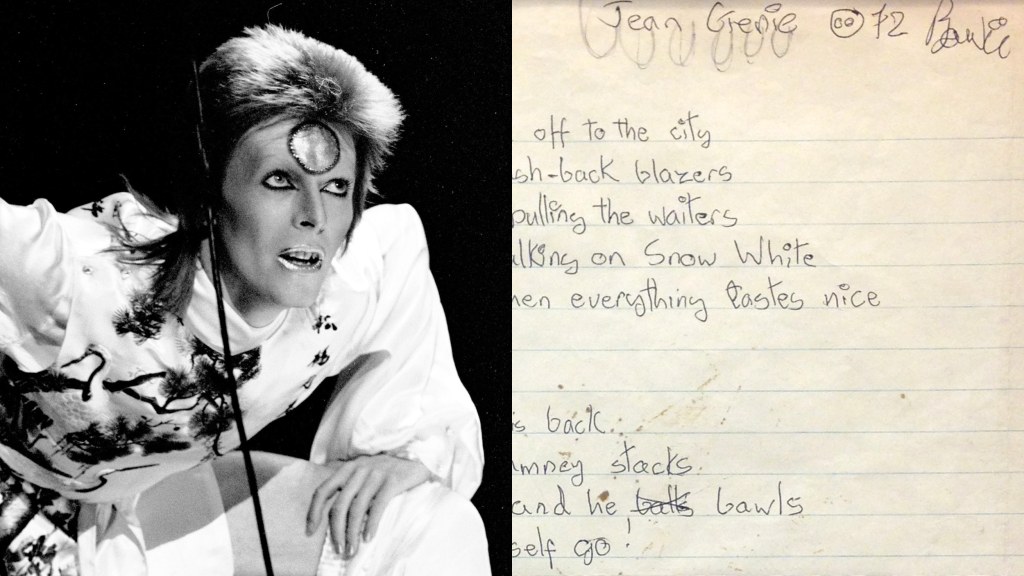 Jean Genie 72 Bowie
off to the city
sh-back blazers
pulling the waiters
lking on Snow White
hen everything tastes nice
s back.
mney stacks.
and he balls bawls
self go!